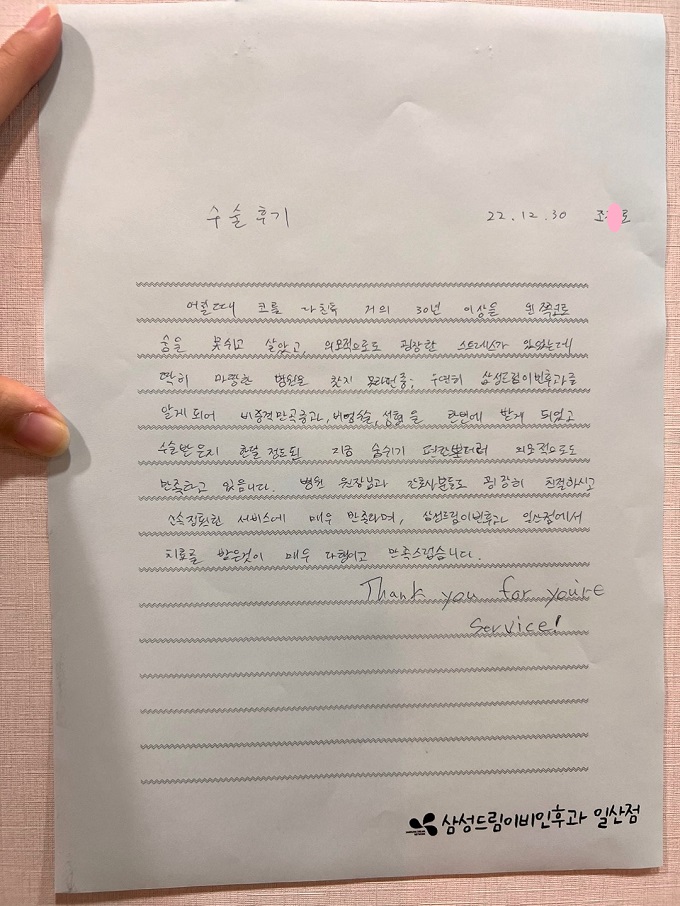 수술후기 22.12.30 조 로
어릴때 코를 다친후 거의 30년 이상을 왼쪽으로
숨을 못쉬고 살았고, 외모적으로도 굉장한 스트레스가 있었는데
딱히 마땅한 병원을 찾지 못하던중; 우연히 삼성드림이비인후과를
알게되어 비중격만곡증과, 비염수술, 성형을 한번에 받게 되었고
수술받은지 한달 정도된 지금 숨쉬기 편한뿐더러 외모적으로도
만족하고 있습니다. 병원 원장님과 간호사분들도 굉장히 친절하시고
신속정확한 서비스에 매우 만족하며, 삼성드림이비인후과 일산점에서
치료를 받은것이 매우 다행이고 만족스럽습니다.
Thank you for you're
service!
삼성드림이비인후과 일산점